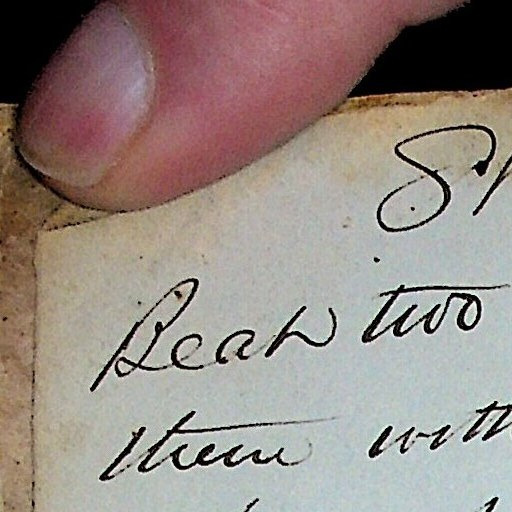 S
Beat two
them with